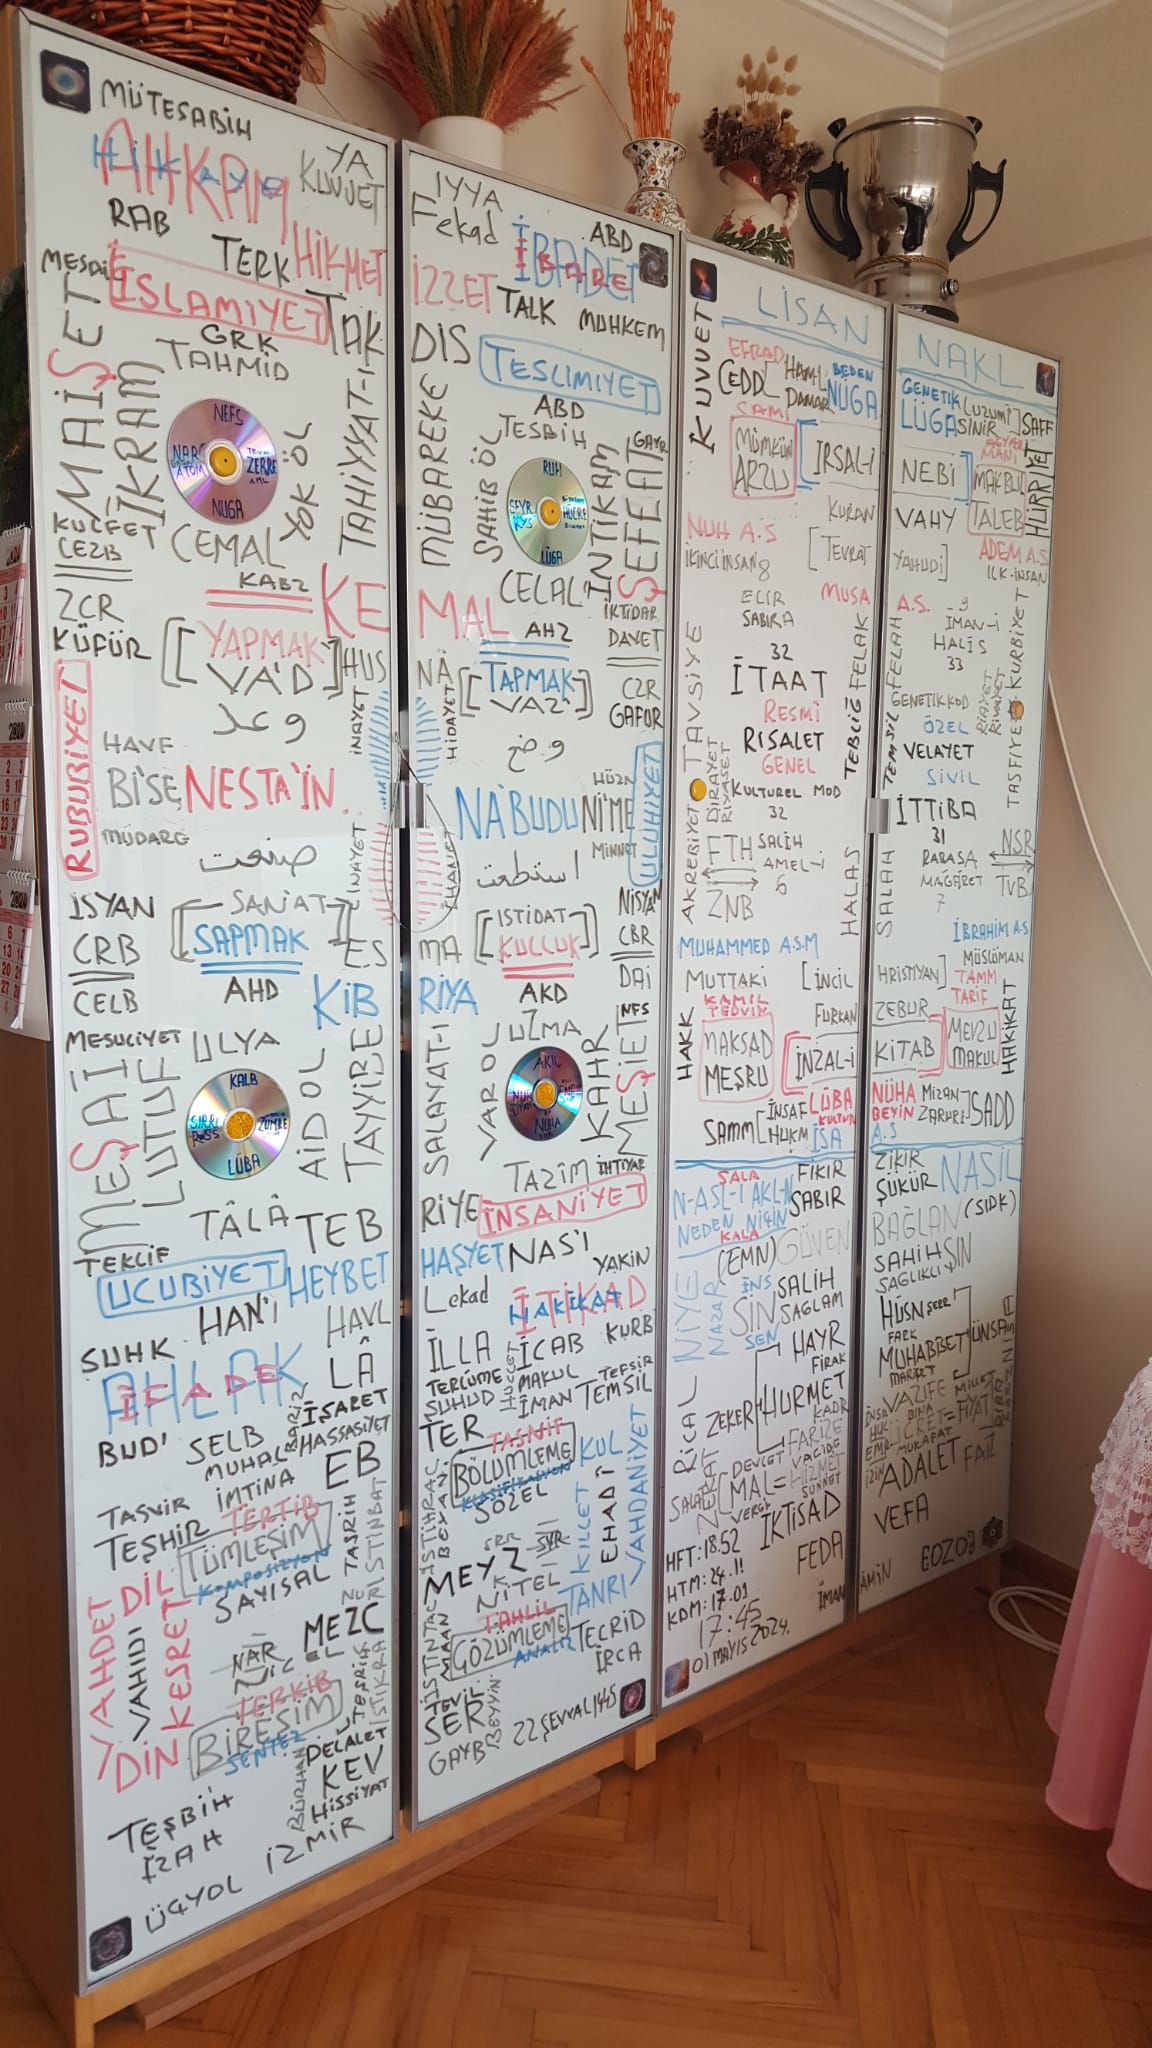 MÜTEŞABİH
AHKAM
HİKAYE
YA
KUVVET
RAB
TERK
HİKMET
İSLAMİYET
TAK
GRK
TAHMİD
MAİŞET
İKRAM
NEFS
NAR
ATOM
ZERRE
NUGA
YOK ÖL
TAHİYYAT-I
KÜLFET
CEZB
CEMAL
KABZ
KE
ZCR
KÜFÜR
YAPMAK
VA'D
HUS
وعد
İNAYET
RUBUBİYET
HAVF
BİSE
NESTA'İN
MÜDARE
صنعت
İSYAN
SANİAT
SAPMAK
CRB
ES
CELB
AHD
KİB
MESULİYET
ULYA
MEŞAİ
LUTUF
KALB
SIRR
ZÜMRE
LÜBA
AİDOL
TAYYİBE
TÂLÂ
TEB
TEKLİF
UCUBİYET
HEYBET
HAN'I
HAVL
ŞUHK
AHLAK
İFADE
LÂ
İŞARET
HASSASİYET
BUD'
SELB
MUHAL
İMTİNA
EB
TASVİR
TEŞHİR
TERTİB
TÜMLEŞİM
KOMPOZİSYON
SAYISAL
TASRİH
İSTİNBAT
VAHDET
DİL
VAHİDİ
KESRET
DİN
NAR
MEZC
TERKİB
BİREŞİM
SENTEZ
TEŞRİK
İSTİKRA
DELALET
KEV
HİSSİYAT
BURHAN
TEŞBİH
İZAH
ÜÇYOL
İZMİR
IYYA
Fekad
ABD
İBADET
İBARE
İZZET
TALK
MUHKEM
DIS
TESLİMİYET
ABD
TESBİH
MÜBAREKE
SAHİB ÖL
RUH
SEYR
HÜCRE
LÜGA
İNTİKAM
GAYR
ŞEFEAT
CELAL
İKTİDAR
MAL
AHZ
DAVET
NÂ
TAPMAK
VAZ'
CZR
GAFUR
HİDAYET
وضع
HÜZN
NA'BUDU
Nİ'ME
MİNNET
ULUHİYET
استطعت
İHANET
NİSYAN
MA
İSTİDAT
KULLUK
CBR
DAİ
RİYA
AKD
NFS
UZMA
SALAVAT-I
VAROL
AKIL
NUHA
KAHR
MEŞİET
TAZİM
İHTİYAR
RİYE
İNSANİYET
HAŞYET
NAS'I
YAKİN
Lekad
İTİKAD
HAKİKAT
İLLA
İCAB
KURB
TERCÜME
ŞUHUD
HÜCCET
MAKUL
İMAN
TEFSİR
TEMSİL
TER
TASNİF
BÖLÜMLEME
KLASİFİKASYON
SÖZEL
KUL
İSTİHRAC
BEYAN
KILLET
EHAD'İ
VAHDANİYET
MEYZ
NİTEL
TANRI
TAHLİL
ÇÖZÜMLEME
ANALİZ
TECRİD
İRCA
İSTİNTAC
MAAN
TEVİL
SER
GAYB
BEYYİN
22 ŞEVVAL 1445
LİSAN
KUVVET
EFRAD
CEDD
HAMİL
DAMAR
BEDEN
NUGA
CAMİ
MÜMKÜN
ARZU
İRSAL-İ
KURAN
NUH A.S
İKİNCİ İNSAN 8
TEVRAT
ELİR
SABIRA
MUSA
TAVSİYE
32
İTAAT
RESMİ
RİSALET
GENEL
KULTUREL MOD
32
TEBLİĞ
FELAK
DİRAYET
RİYASET
AKREBİYET
FTH
ZNB
SALİH
AMEL-İ
6
HALAS
MUHAMMED A.S.M
MUTTAKİ
İNCİL
KAMİL
TEDVİR
FURKAN
HAKK
MAKSAD
MEŞRU
İNZAL-İ
İNSAF
SAMM
HÜKM
LÜBA
KÜLTÜR
İSA
SALA
N-ASL-I AKL-N
NEDEN NİÇİN
KALA
FİKİR
SABIR
(EMN)
GÜVEN
NİYE
NAZAR
İNS
SİN
SEN
SALİH
SAĞLAM
HAYR
FIRAK
RİCAL
ZEKER
HÜRMET
KADR
FARİZE
SALAT
ZEKAT
DEVLET
MAL=
VERGİ
VACİDE
HİZMET
SÜNNET
İKTİSAD
HFT: 18.52
HTM: 24.11
KDM: 17.01
FEDA
17:45
01 MAYIS 2024.
İMAN
NAKL
GENETİK
LÜGA
LUZUMİ
SINIR
SAFF
AGYAR
MANİ
HÜRRİYET
NEBİ
MAKBUL
TALEB
VAHY
YAHUDİ
ADEM A.S
İLK-İNSAN
A.S.
9
İMAN-I
HALİS
33
FELAH
KURBİYET
GENETİK KOD
ÖZEL
VELAYET
SİVİL
TEMSİL
DİRAYET
RİVAYET
TASFİYE
İTTİBA
31
RABASA
MAĞFİRET
7
NSR
TVB
SALAH
İBRAHİM A.S
MÜSLÜMAN
HRİSTİYAN
TAMM
TARİF
ZEBUR
KİTAB
MEVZU
MAKUL
HAKİKAT
NÜHA
BEYİN
A.S
MİZAN
ZARURE
SADD
ZİKİR
ŞÜKÜR
NASIL
BAĞLAN
(SIDK)
SAHİH
SAĞLIKLI
ŞIN
HÜSN
FARK
MUHABBET
MARİFET
ÜNSA
VAZİFE
MİLLET
BİNA
ÜCRET=
FİYAT
MÜKAFAT
ADALET
FAİZ
VEFA
ÂMİN